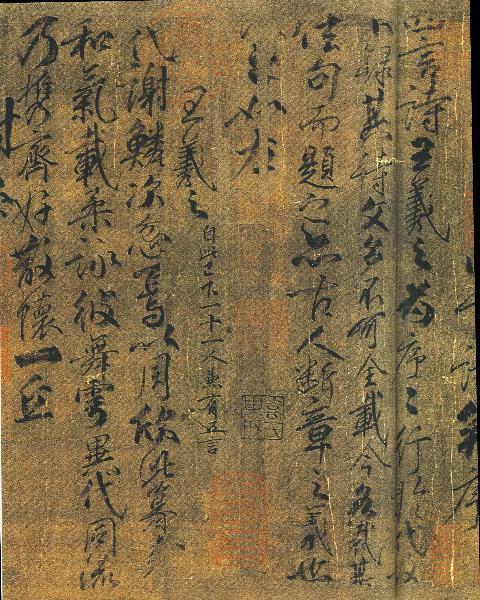 四言詩王羲之為序〻行於代故
不錄其詩文多不可全載今各裁其
佳句而題之亦古人斷章之義也
如左
王羲之 自此已下十一人兼有五言
代謝鱗次忽焉以周欣此暮春
和氣載柔詠彼舞雩異代同流
乃攜齊好散懷一丘